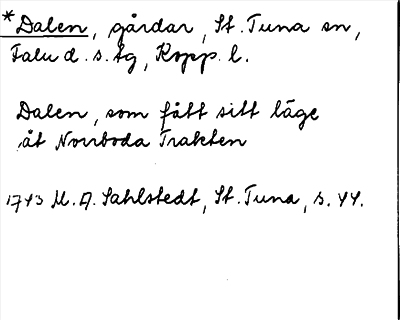 *Dalen, gårdar, St. Tuna sn,
Falu d. s. tg, Kopp. l.
Dalen, som fått sitt läge
åt Norrboda Trakten
1743 M. A. Sahlstedt, St. Tuna, s. 44.